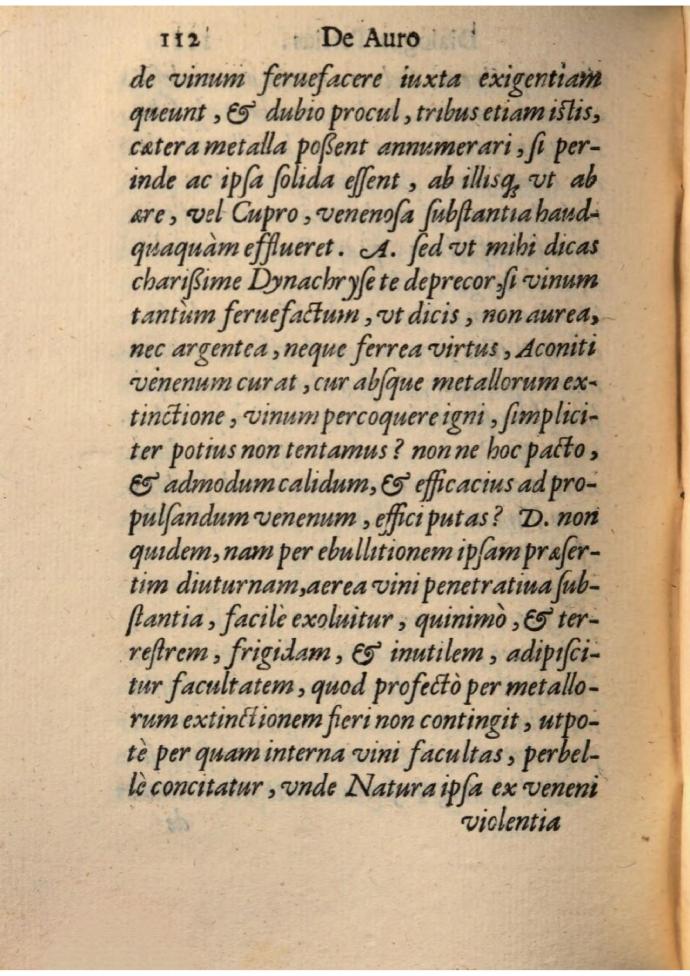 112 De Auro
de vinum feruefacere iuxta exigentiam
queunt, & dubio procul, tribus etiam iſtis,
cætera metalla poßent annumerari, ſi per-
inde ac ipſa ſolida eſſent, ab illisq; vt ab
ære, vel Cupro, venenoſa ſubſtantia haud-
quaquàm efflueret. A. ſed vt mihi dicas
charißime Dynachryſe te deprecor, ſi vinum
tantùm feruefactum, vt dicis, non aurea,
nec argentea, neque ferrea virtus, Aconiti
venenum curat, cur abſque metallorum ex-
tinctione, vinum percoquere igni, ſimplici-
ter potius non tentamus? non ne hoc pacto,
& admodum calidum, & efficacius ad pro-
pulſandum venenum, effici putas? D. non
quidem, nam per ebullitionem ipſam præſer-
tim diuturnam, aerea vini penetratiua ſub-
ſtantia, facilè exoluitur, quinimò, & ter-
reſtrem, frigidam, & inutilem, adipiſci-
tur facultatem, quod profectò per metallo-
rum extinctionem fieri non contingit, utpo-
tè per quam interna vini facultas, perbel-
lè concitatur, vnde Natura ipſa ex veneni
violentia